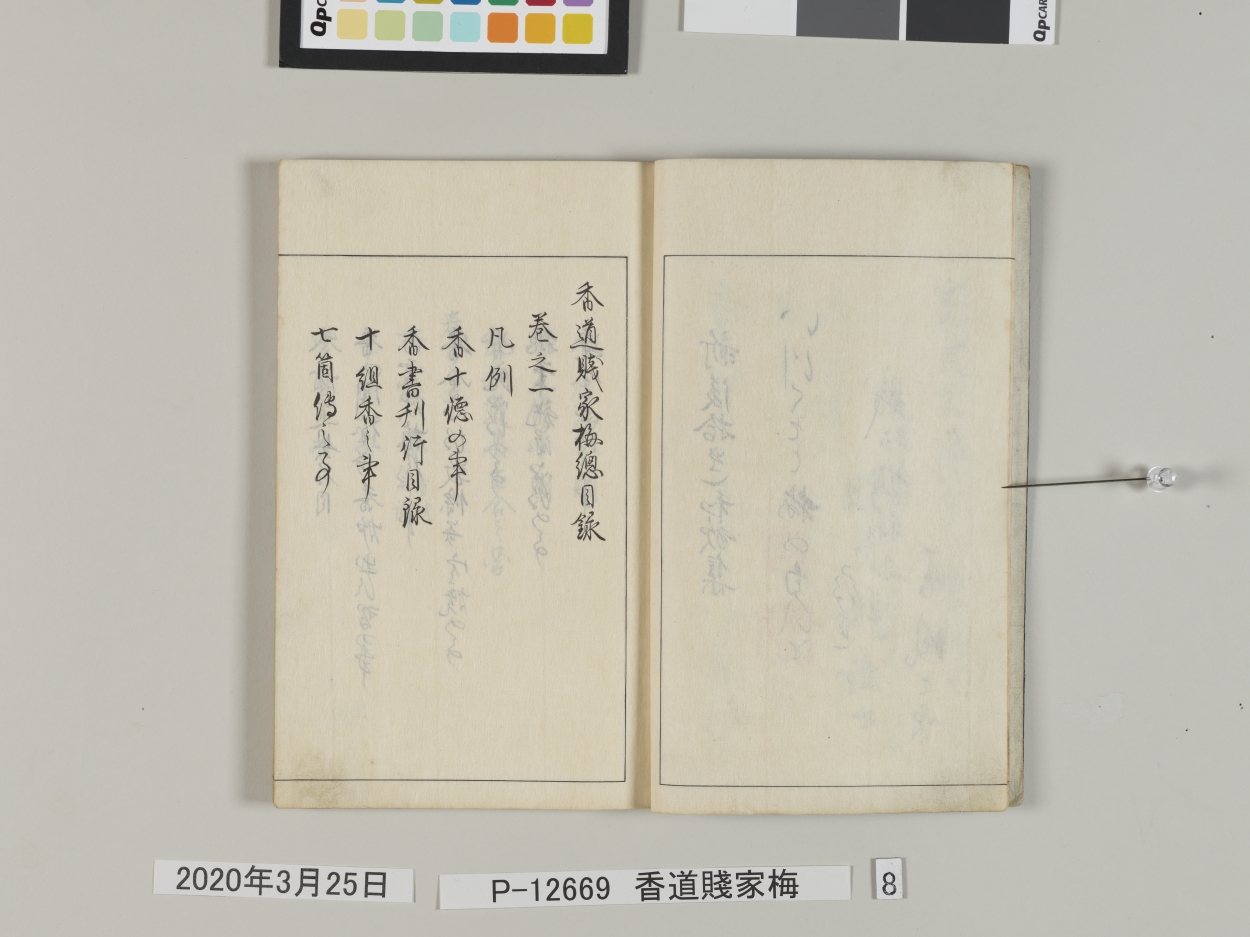 香道賤家梅總目録
巻之一
凡例
香十徳の事
香書刊行目録
十組香之事
七箇傳之事
2020年3月25日
P-12669 香道賤家梅
8
QpCAR